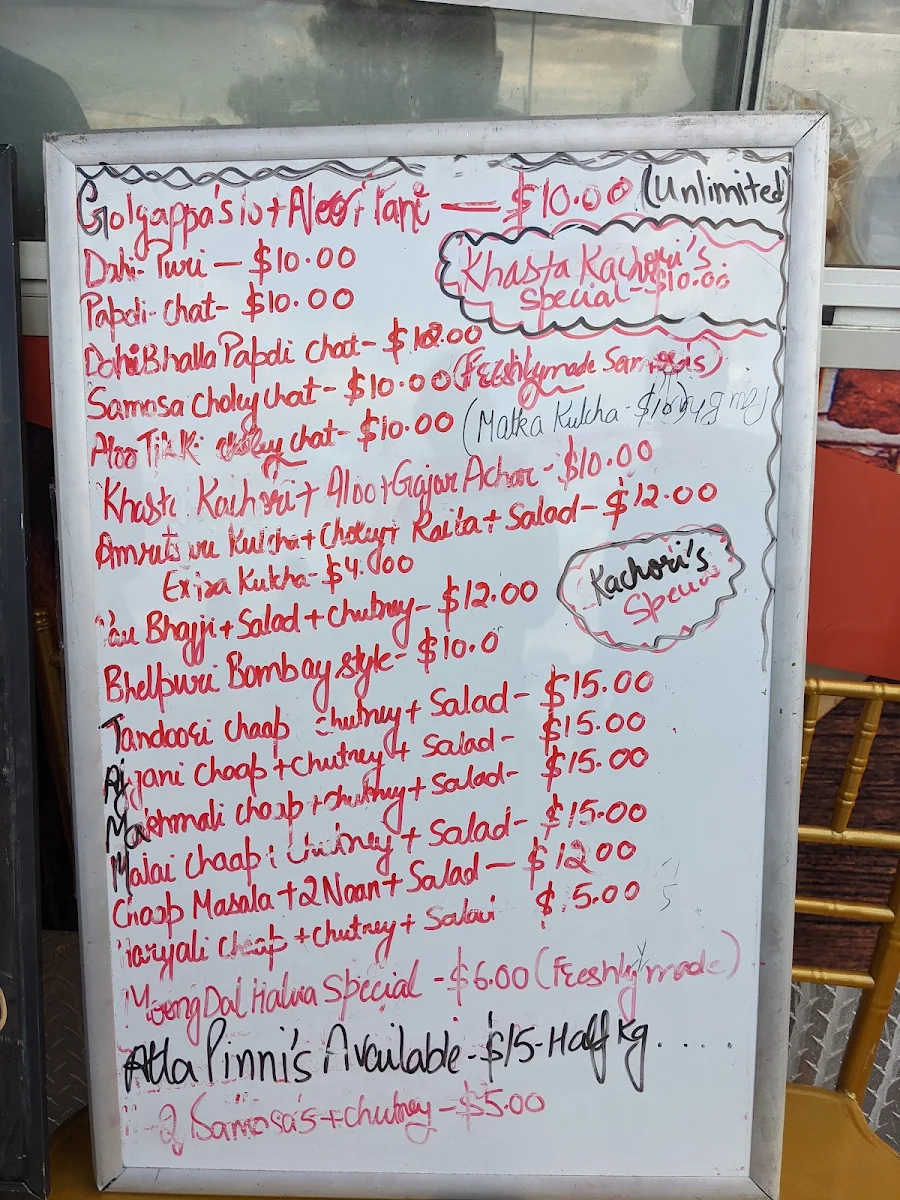 Golgappa's 10 + Pani — $10.00 (Unlimited)
Dahi-Puri — $10.00
Khasta Kachori's
Special - $10.00
Papdi-chat- $10.00
Dahi Bhalla Papdi chat- $10.00
Samosa choley chat- $10.00 (Freshly made Samosa's)
Aloo Tikki choley chat- $10.00 (Matka Kulcha - $10)
Khasta Kachori + Aloo + Gajar Achar - $10.00
Kulcha + Raita + Salad - $12.00
Extra Kulcha- $4.00
Kachori's
Special
Pau Bhajji + Salad + chutney - $12.00
Bhelpuri Bombay style- $10.0
Tandoori chaap chutney + Salad - $15.00
chaap + chutney + Salad - $15.00
Makhmali chaap + chutney + Salad- $15.00
Malai chaap + chutney + Salad- $15.00
Chaap Masala + 2 Naan + Salad — $12.00
Haryali chaap + chutney + Salad $ 5.00
Moong Dal Halwa Special - $6.00 (Freshly made)
Atta Pinni's Available - $15 - Half Kg.....
2 Samosa's + chutney - $5.00